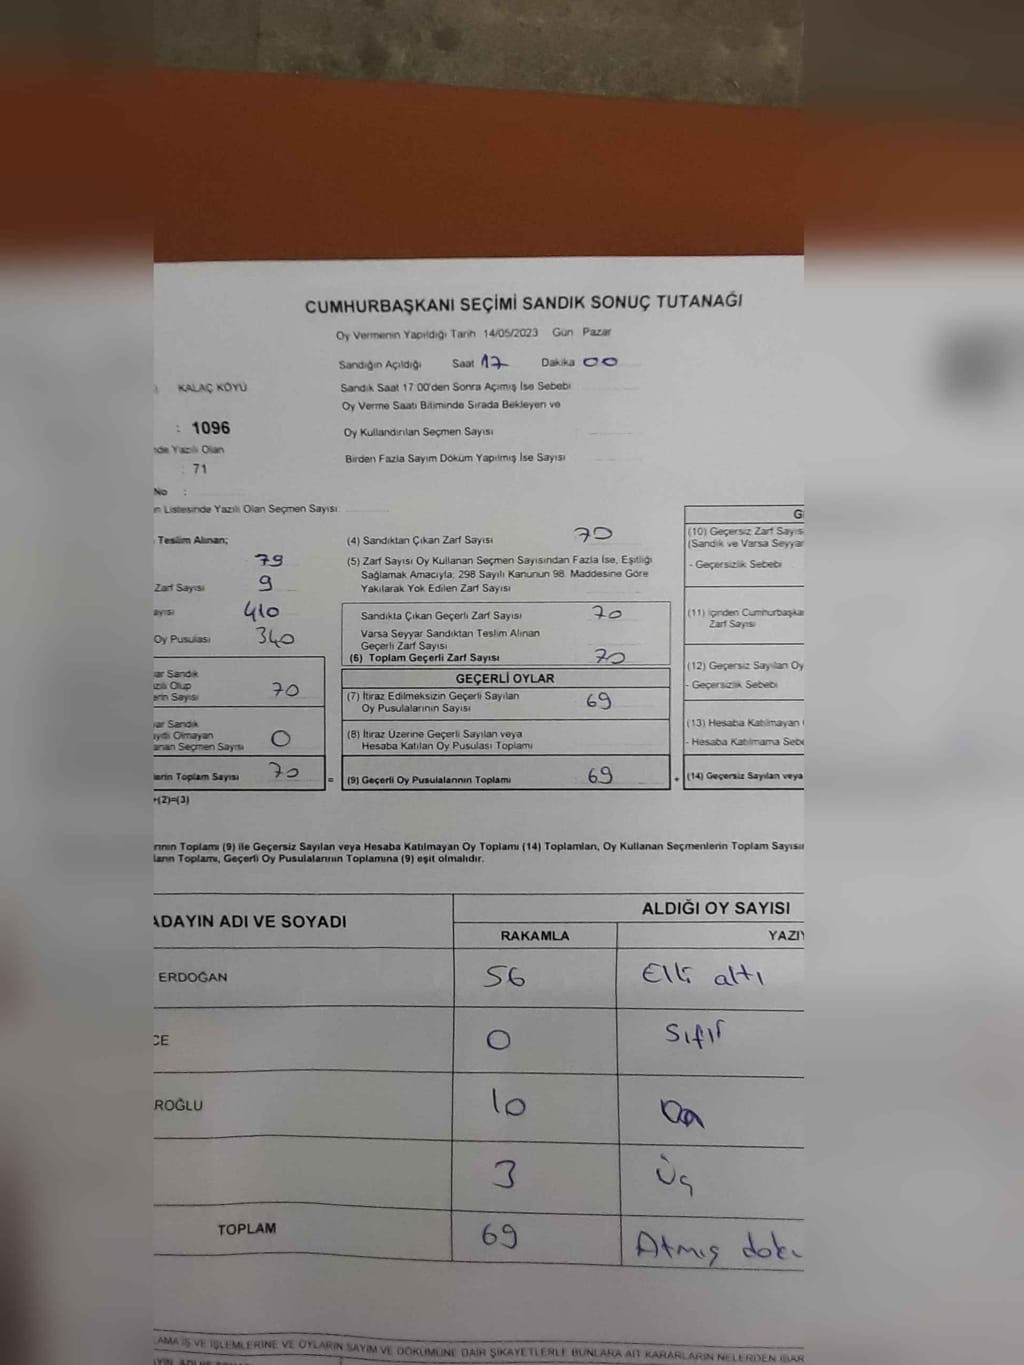 CUMHURBAŞKANI SEÇİMİ SANDIK SONUÇ TUTANAĞI
Oy Vermenin Yapıldığı Tarih 14/05/2023 Gün Pazar
Sandığın Açıldığı Saat 17 Dakika 00
KALAÇ KÖYÜ
Sandık Saat 17:00'den Sonra Açılmış İse Sebebi
Oy Verme Saati Bitiminde Sırada Bekleyen ve
: 1096
Oy Kullandırılan Seçmen Sayısı
Yazılı Olan
Birden Fazla Sayım Döküm Yapılmış İse Sayısı
: 71
No :
Listesinde Yazılı Olan Seçmen Sayısı
Teslim Alınan;
79
Zarf Sayısı 9
410
Oy Pusulası 340
Sandık
Olup
Sayısı 70
Sandık
Olmayan
Seçmen Sayısı 0
Toplam Sayısı 70
+(2)=(3)
=
(4) Sandıktan Çıkan Zarf Sayısı 70
(5) Zarf Sayısı Oy Kullanan Seçmen Sayısından Fazla İse, Eşitliği
Sağlamak Amacıyla, 298 Sayılı Kanunun 98. Maddesine Göre
Yakılarak Yok Edilen Zarf Sayısı
Sandıkta Çıkan Geçerli Zarf Sayısı 70
Varsa Seyyar Sandıktan Teslim Alınan
Geçerli Zarf Sayısı
(6) Toplam Geçerli Zarf Sayısı 70
GEÇERLİ OYLAR
(7) İtiraz Edilmeksizin Geçerli Sayılan
Oy Pusulalarının Sayısı 69
(8) İtiraz Üzerine Geçerli Sayılan veya
Hesaba Katılan Oy Pusulası Toplamı
(9) Geçerli Oy Pusulalarının Toplamı 69
+
(10) Geçersiz Zarf
(Sandık ve Varsa
- Geçersizlik Sebebi
(11) İçinden
Zarf Sayısı
(12) Geçersiz Sayılan Oy
- Geçersizlik Sebebi
(13) Hesaba Katılmayan
- Hesaba Katılmama
(14) Geçersiz Sayılan veya
Toplamı (9) ile Geçersiz Sayılan veya Hesaba Katılmayan Oy Toplamı (14) Toplamları, Oy Kullanan Seçmenlerin Toplam
Toplamı, Geçerli Oy Pusulalarının Toplamına (9) eşit olmalıdır.
ADAYIN ADI VE SOYADI
ALDIĞI OY SAYISI
RAKAMLA
ERDOĞAN 56 Elli altı
0 Sıfır
10 On
3 Üç
TOPLAM 69 Atmış
VE İŞLEMLERİNE VE OYLARIN SAYIM VE DÖKÜMÜNE DAİR ŞİKAYETLERLE BUNLARA AİT KARARLARIN NELERDEN